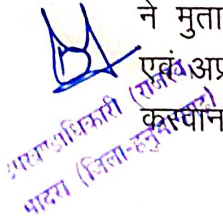 ने मुता
एवं अप्र
करवान
उपखण्ड अधिकारी (राजस्व)
भादरा (जिला-हनुमानगढ़)